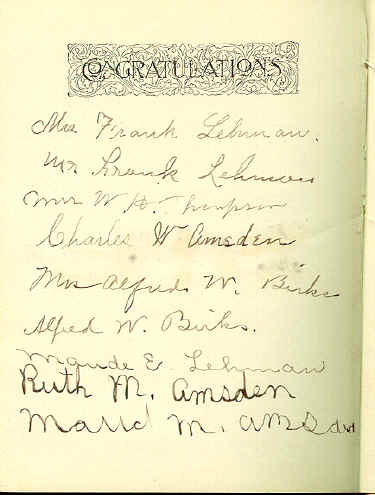 CONGRATULATIONS
Mrs Frank Lehman.
Mr Frank Lehman
Mrs W. H. Simpson
Charles W Amsden
Mrs Alfred W. Birks
Alfred W. Birks.
Maude E. Lehman
Ruth M. Amsden
Maud M. Amsden